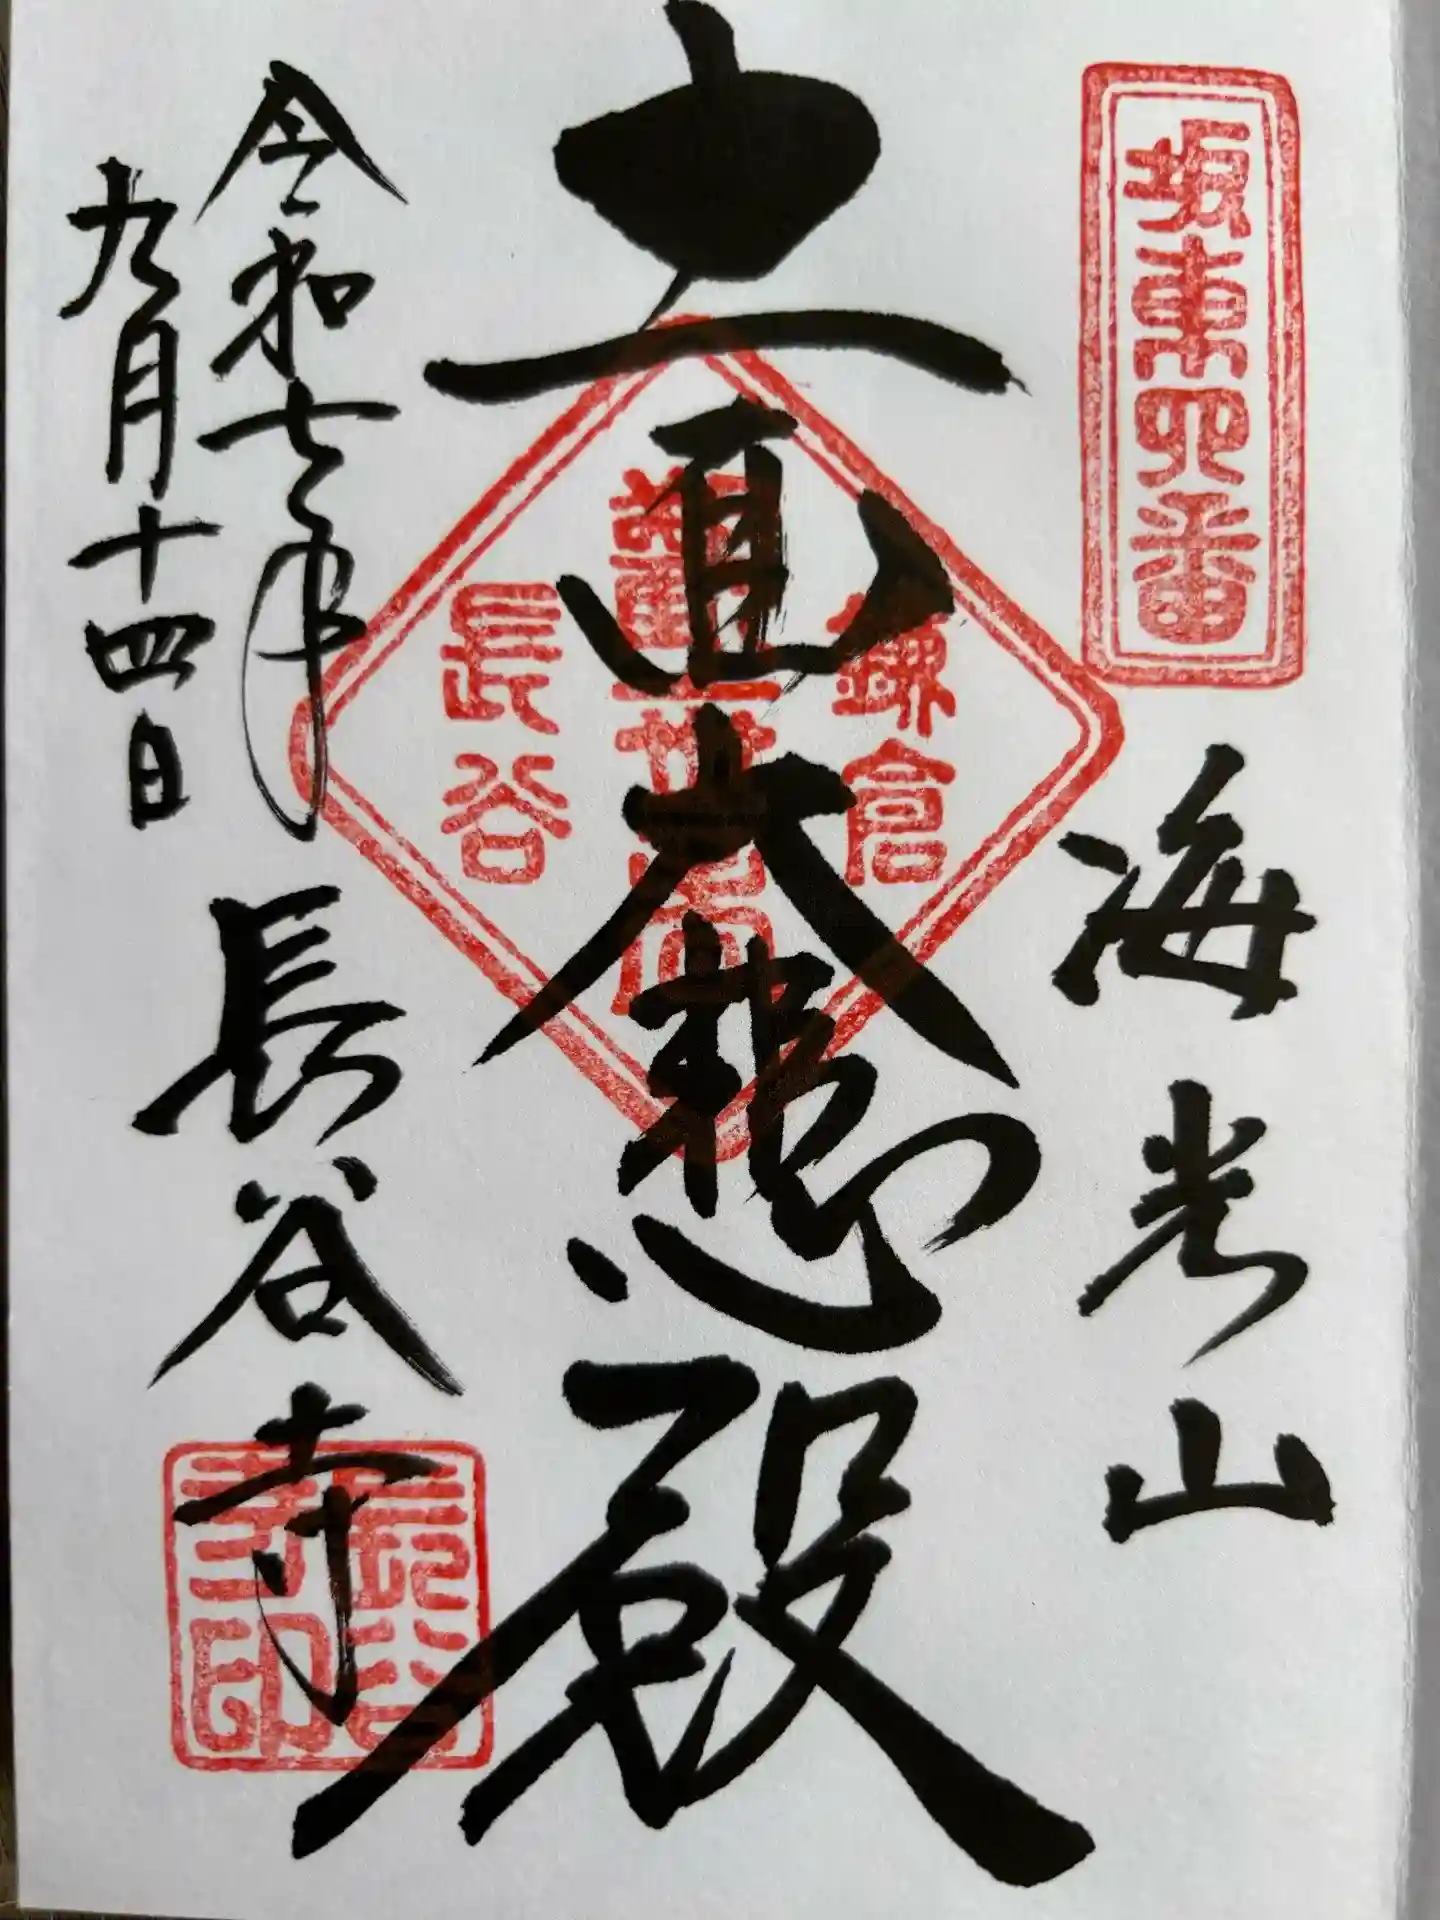 坂東四番
海光山
十一面大悲殿
鎌倉
長谷
令和七年
九月十四日
長谷寺
長谷寺印